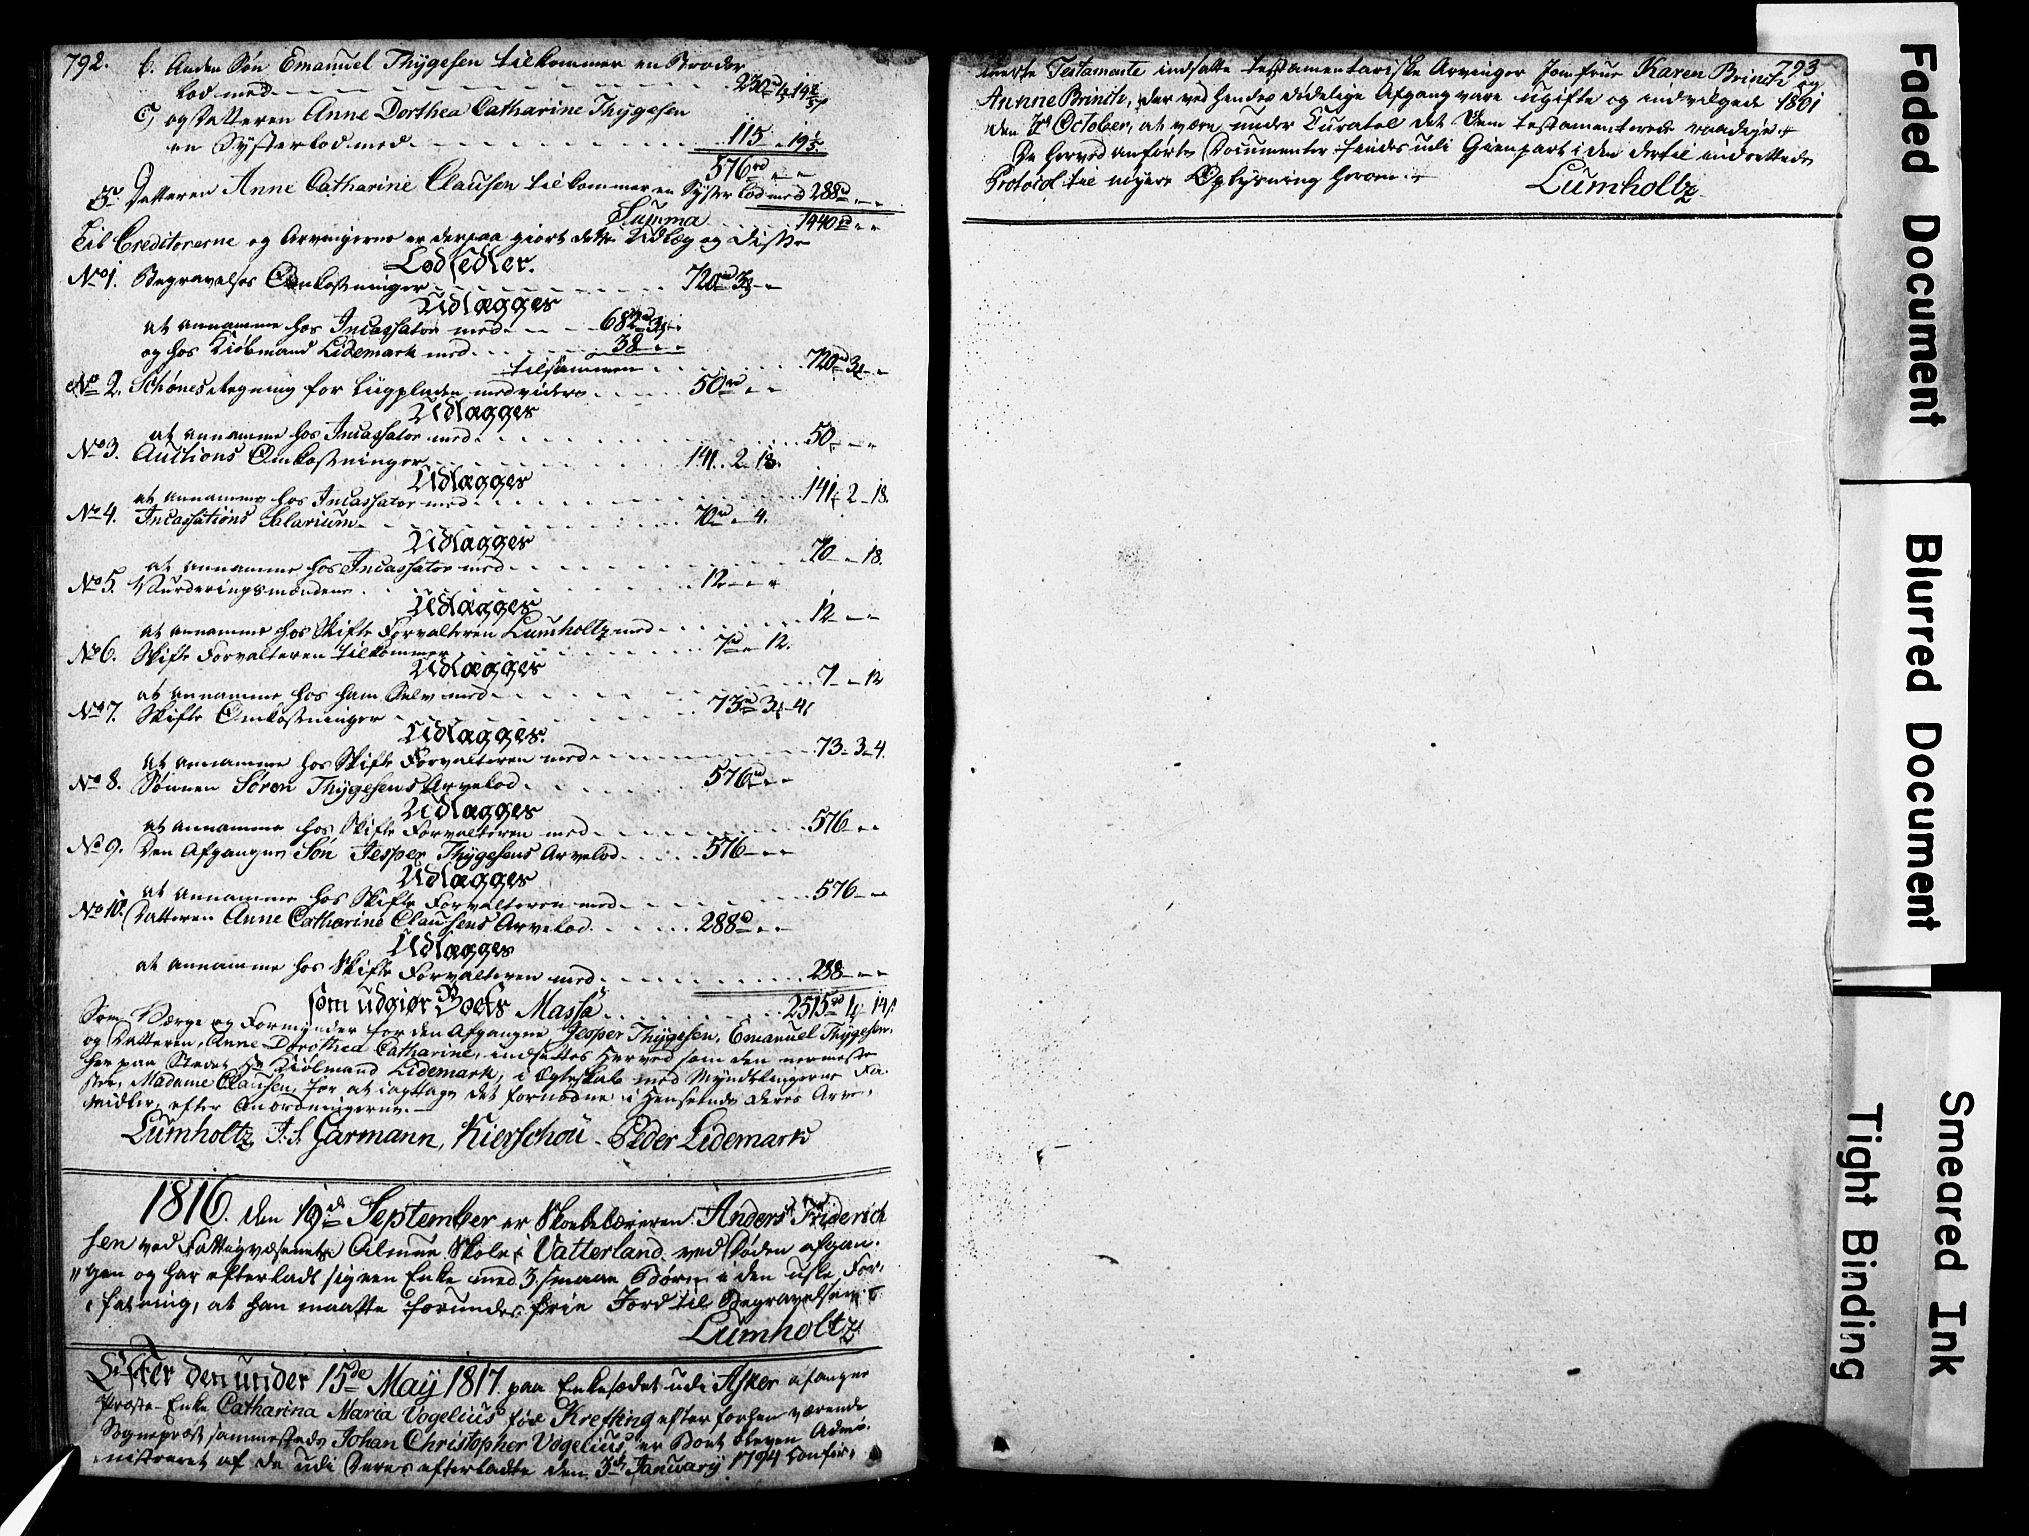 792. b. Anden Søn Emanuel Thygesen tilkommer en Broder
lod med 230 rd 4 19 1/5 s
c, og Datteren Anne Dorthea Catharine Thygesen
en Systerlod med 115 - 19 1/5
576 rd - -
Datteren Anne Catharine Clausen tilkommer en Syster lod med 288 rd - -
Summa 1440 rd - -
Til Creditorerne og Arvingerne er derpaa giort dette Udlæg og disse
Lodsedler.
No 1. Begravelses Omkostninger 720 rd 3 -
Udlægges
at annamme hos Incassator med 682 rd 3 -
og hos Kiøbmand Lidemark med 38 - -
tilsammen 720 rd 3 -
No 2. Schønes Regning for Liigpladen med videre 50 rd - -
Udlægges
at annamme hos Incassator med 50 - -
No 3. Auctions Omkostninger 141 . 2 . 18.
Udlægges
at annamme hos Incassator med 141 - 2 - 18.
No 4. Incassations Salarium 70 rd - 4.
Udlægges
at annamme hos Incassator med 70 - - 18.
No 5. Vurderingsmændene 12 - - -
Udlægges
at annamme hos Skifte Forvalteren Lumholtz med 12 - -
No 6. Skifte Forvalteren tilkommer 7 rd - 12.
Udlægges
at annamme hos ham Selv med 7 - - 12
No 7. Skifte Omkostninger 73 rd 3 - 4
Udlægges.
at annamme hos Skifte Forvalteren med 73 - 3 - 4.
No 8. Sønnen Søren Thygesens Arvelod 576 rd - -
Udlægges
at annamme hos Skifte Forvalteren med 576 - -
No 9. Den Afgangne Søn Jesper Thygesens Arvelod 576 - -
Udlægges
at annamme hos Skifte Forvalteren med 576 - -
No 10. Datteren Anne Catharine Clausens Arvelod 288 rd - -
Udlægges
at annamme hos Skifte Forvalteren med 288 - -
som udgiør Boets Massa 2515 rd 4 14 s
Som Værge og Formynder for den Afgangne Jesper Thygesen, Emanuel Thygesen,
og Datteren, Anne Dorothea Catharine, indsettes herved som den nermeste
her paa Stedet Hr Kiøbmand Lidemark, i Ægteskab med Myndtlingerne Fa-
ster, Madame Clausen, for at iagttage det fornødne i Henseende deres Arve-
midler, efter Anordningerne.
Lumholtz J. S. Garmann, Kierschou - Peder Lidemark
1816. den 19de September er Skolelæreren Anders Friderich
sen ved Fattigvæsenets Almue Skole i Vatterland ved Døden afgan-
gen og har efterladt sig een Enke med 3. smaae Børn i den uske For-
fatning, at han maatte forundes frie Jord til Begravelsen
Lumholtz
Efter den under 15de May 1817. paa Enkesædet udi Asker afgangne
Præste-Enke Catharina Maria Vogelius fød Krefting efter forhen værende
Sognepræst sammesteds Johan Christopher Vogelius, er Boet bleven Admi-
nistreret af de udi Deres efterladte den 3d January 1794 Confir-
793
merte Testamente indsatte testamentariske Arvinger Jomfrue Karen Brinch og
Annne Brinch, der ved Hendes dødelige Afgang vare ugifte og indvilgede 1801
den October, at være under Curatel det Dem testamenterede raadige
De herved anførte Documenter findes udi Gienpart i den dertil indrettede
Protocol til nøjere Oplysning herom.
Lumholtz
Faded Document
Blurred Document
Smeared Ink
Tight Binding